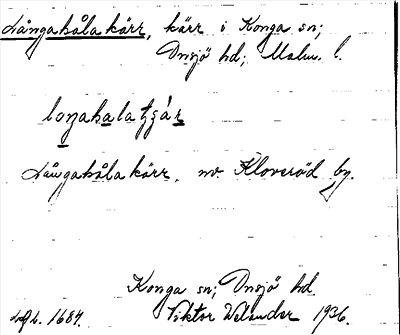 Långahåla kärr, kärr i Konga sn;
Onsjö hd; Malm. l.
loŋahalatʃár
Långahåla kärr, nv. Kloveröd by.
Konga sn; Onsjö hd
Lgl. 1687. Viktor Welander 1936.